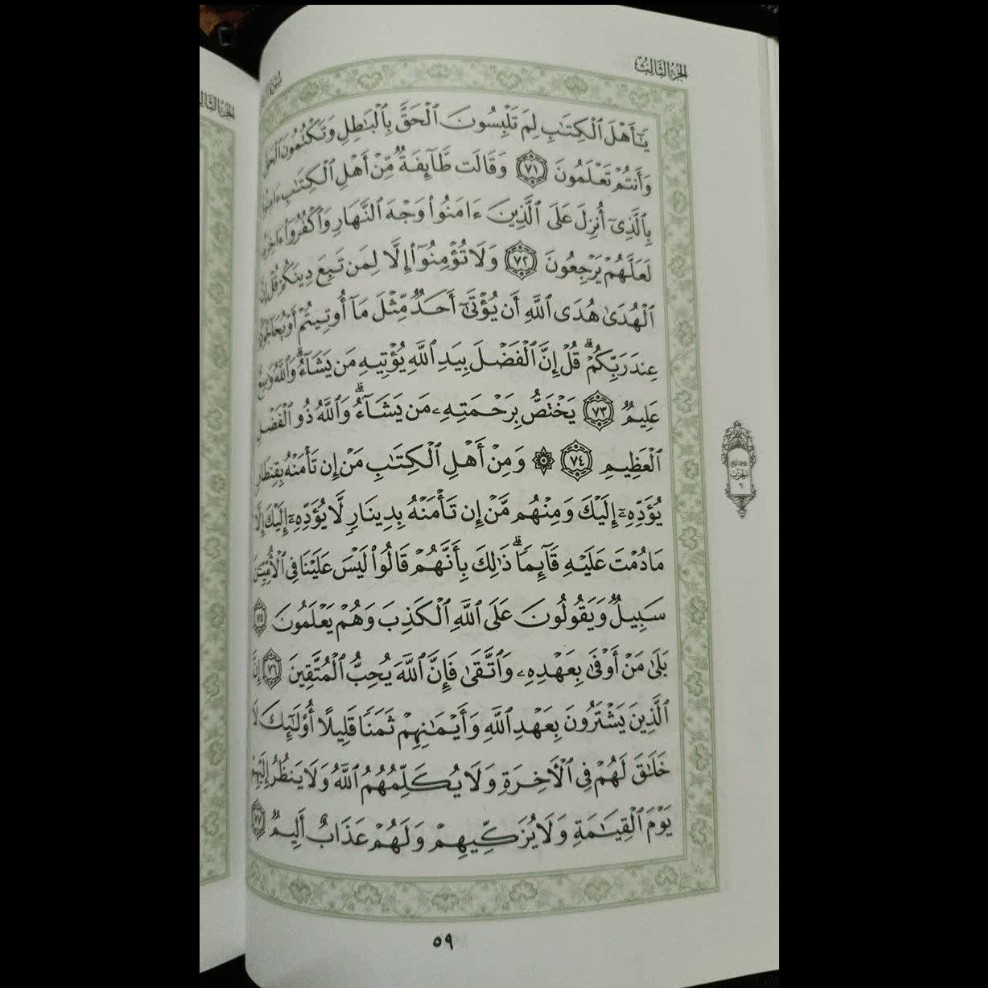 الجزء الثالث
يَٰٓأَهْلَ ٱلْكِتَٰبِ لِمَ تَلْبِسُونَ ٱلْحَقَّ بِٱلْبَٰطِلِ وَتَكْتُمُونَ ٱلْحَقَّ
وَأَنتُمْ تَعْلَمُونَ ٧١ وَقَالَت طَّآئِفَةٌ مِّنْ أَهْلِ ٱلْكِتَٰبِ ءَامِنُوا۟
بِٱلَّذِىٓ أُنزِلَ عَلَى ٱلَّذِينَ ءَامَنُوا۟ وَجْهَ ٱلنَّهَارِ وَٱكْفُرُوٓا۟ ءَاخِرَهُۥ
لَعَلَّهُمْ يَرْجِعُونَ ٧٢ وَلَا تُؤْمِنُوٓا۟ إِلَّا لِمَن تَبِعَ دِينَكُمْ قُلْ إِنَّ
ٱلْهُدَىٰ هُدَى ٱللَّهِ أَن يُؤْتَىٰٓ أَحَدٌ مِّثْلَ مَآ أُوتِيتُمْ أَوْ يُحَآجُّوكُمْ
عِندَ رَبِّكُمْ ۗ قُلْ إِنَّ ٱلْفَضْلَ بِيَدِ ٱللَّهِ يُؤْتِيهِ مَن يَشَآءُ ۗ وَٱللَّهُ وَٰسِعٌ
عَلِيمٌ ٧٣ يَخْتَصُّ بِرَحْمَتِهِۦ مَن يَشَآءُ ۗ وَٱللَّهُ ذُو ٱلْفَضْلِ
ٱلْعَظِيمِ ٧٤ ۞ وَمِنْ أَهْلِ ٱلْكِتَٰبِ مَنْ إِن تَأْمَنْهُ بِقِنطَارٍ
يُؤَدِّهِۦٓ إِلَيْكَ وَمِنْهُم مَّنْ إِن تَأْمَنْهُ بِدِينَارٍ لَّا يُؤَدِّهِۦٓ إِلَيْكَ إِلَّا
مَا دُمْتَ عَلَيْهِ قَآئِمًا ۗ ذَٰلِكَ بِأَنَّهُمْ قَالُوا۟ لَيْسَ عَلَيْنَا فِى ٱلْأُمِّيِّـۧنَ
سَبِيلٌ وَيَقُولُونَ عَلَى ٱللَّهِ ٱلْكَذِبَ وَهُمْ يَعْلَمُونَ ٧٥
بَلَىٰ مَنْ أَوْفَىٰ بِعَهْدِهِۦ وَٱتَّقَىٰ فَإِنَّ ٱللَّهَ يُحِبُّ ٱلْمُتَّقِينَ ٧٦ إِنَّ
ٱلَّذِينَ يَشْتَرُونَ بِعَهْدِ ٱللَّهِ وَأَيْمَٰنِهِمْ ثَمَنًا قَلِيلًا أُو۟لَٰٓئِكَ لَا
خَلَٰقَ لَهُمْ فِى ٱلْءَاخِرَةِ وَلَا يُكَلِّمُهُمُ ٱللَّهُ وَلَا يَنظُرُ إِلَيْهِمْ
يَوْمَ ٱلْقِيَٰمَةِ وَلَا يُزَكِّيهِمْ وَلَهُمْ عَذَابٌ أَلِيمٌ ٧٧
٥٩